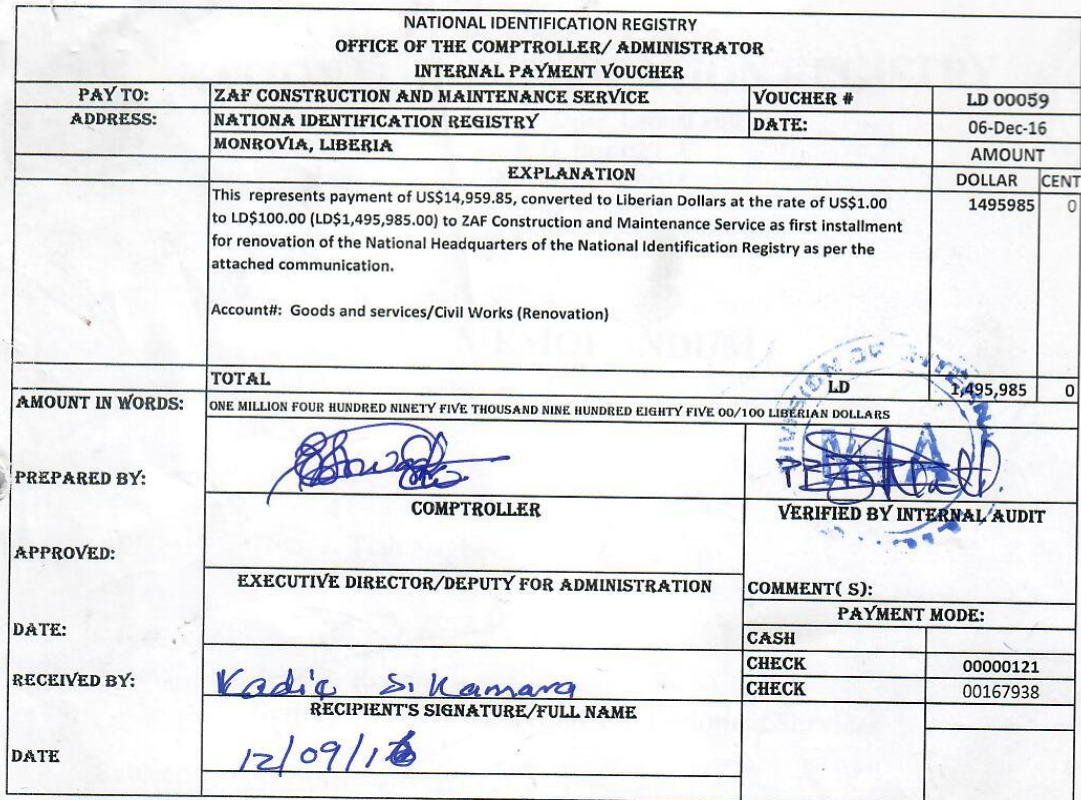 NATIONAL IDENTIFICATION REGISTRY
OFFICE OF THE COMPTROLLER/ ADMINISTRATOR
INTERNAL PAYMENT VOUCHER
PAY TO: ZAF CONSTRUCTION AND MAINTENANCE SERVICE VOUCHER # LD 00059
ADDRESS: NATIONA IDENTIFICATION REGISTRY DATE: 06-Dec-16
MONROVIA, LIBERIA AMOUNT
EXPLANATION DOLLAR CENT
This represents payment of US$14,959.85, converted to Liberian Dollars at the rate of US$1.00 1495985 0
to LD$100.00 (LD$1,495,985.00) to ZAF Construction and Maintenance Service as first installment
for renovation of the National Headquarters of the National Identification Registry as per the
attached communication.
Account#: Goods and services/Civil Works (Renovation)
TOTAL LD 1,495,985 0
AMOUNT IN WORDS: ONE MILLION FOUR HUNDRED NINETY FIVE THOUSAND NINE HUNDRED EIGHTY FIVE 00/100 LIBERIAN DOLLARS
DIVISION OF INTERNAL
PREPARED BY:
COMPTROLLER VERIFIED BY INTERNAL AUDIT
APPROVED:
EXECUTIVE DIRECTOR/DEPUTY FOR ADMINISTRATION COMMENT( S):
PAYMENT MODE:
DATE: CASH
CHECK 00000121
RECEIVED BY: Vadie S. Kamara CHECK 00167938
RECIPIENT'S SIGNATURE/FULL NAME
DATE 12/09/16